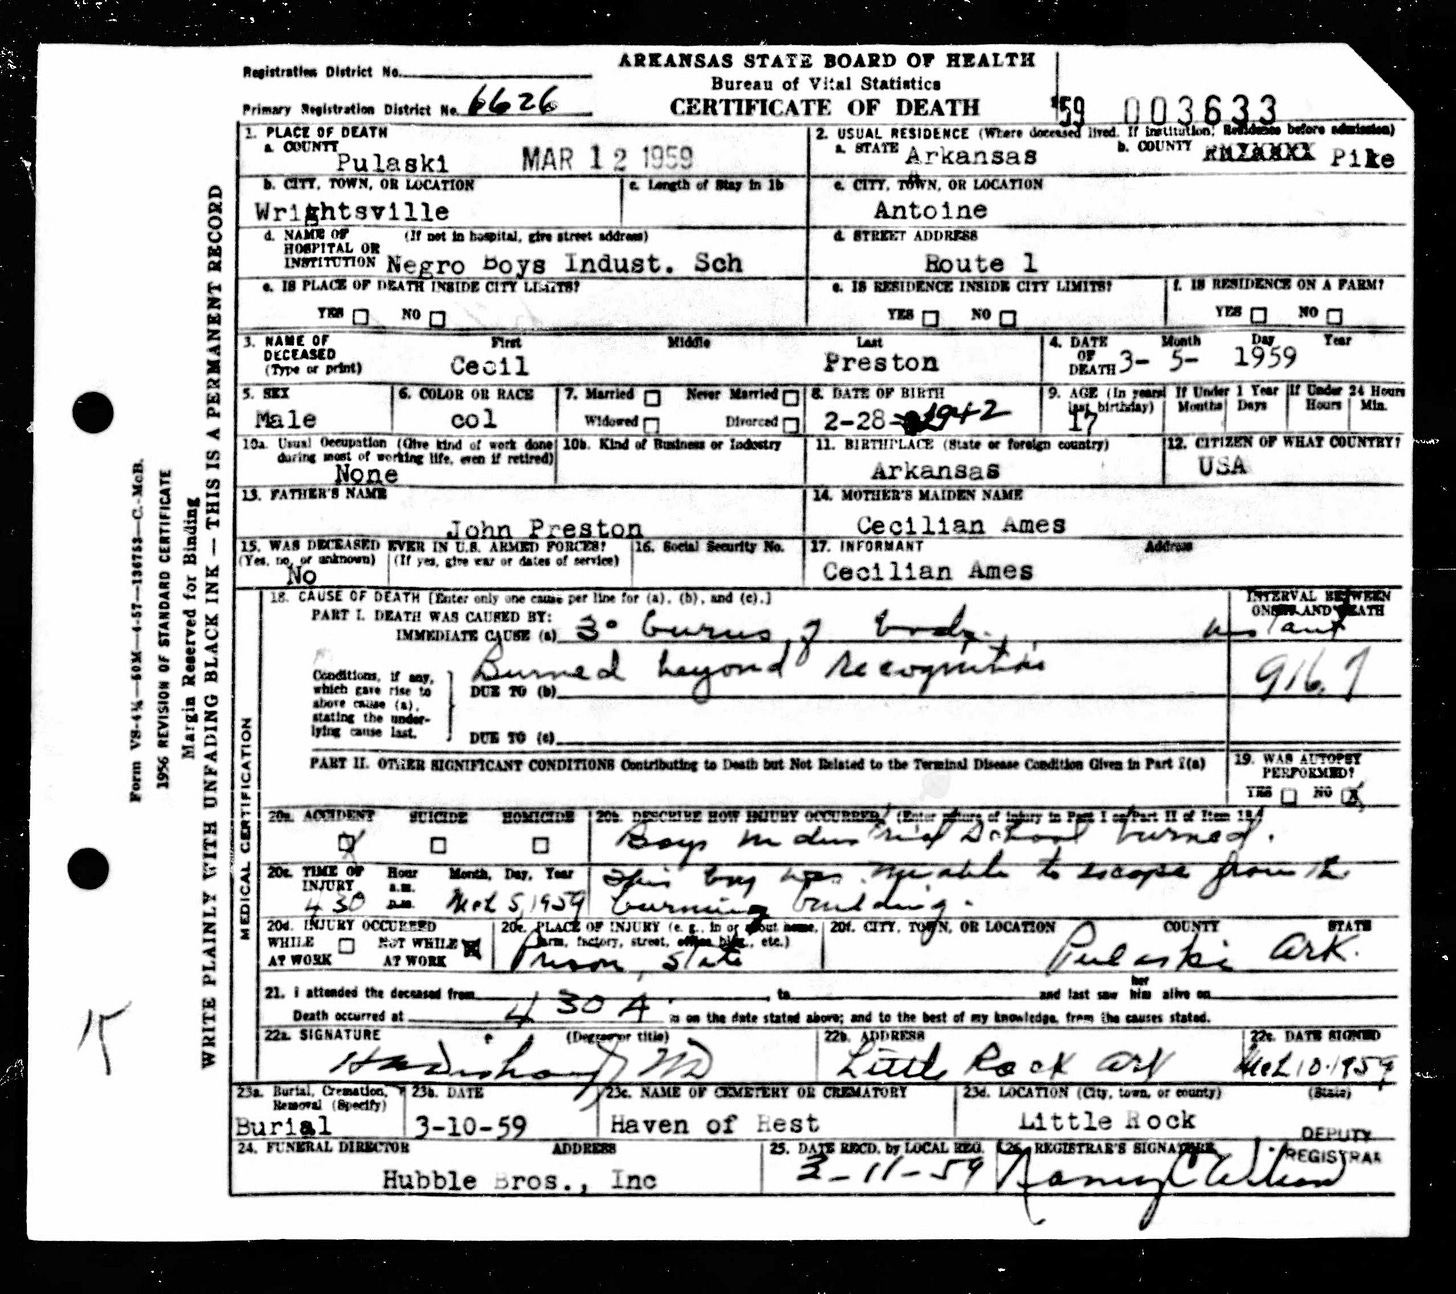 ARKANSAS STATE BOARD OF HEALTH
Bureau of Vital Statistics
CERTIFICATE OF DEATH
Registration District No.
Primary Registration District No. 6626
'59 003633
1. PLACE OF DEATH
a. COUNTY Pulaski MAR 12 1959
2. USUAL RESIDENCE (Where deceased lived. If institution: Residence before admission)
a. STATE Arkansas b. COUNTY Pike
b. CITY, TOWN, OR LOCATION Wrightsville
c. Length of Stay in 1b
c. CITY, TOWN, OR LOCATION Antoine
d. NAME OF HOSPITAL OR INSTITUTION (If not in hospital, give street address) Negro Boys Indust. Sch
d. STREET ADDRESS Route 1
e. IS PLACE OF DEATH INSIDE CITY LIMITS? YES NO
e. IS RESIDENCE INSIDE CITY LIMITS? YES NO
f. IS RESIDENCE ON A FARM? YES NO
3. NAME OF DECEASED (Type or print) First Cecil Middle Last Preston
4. DATE OF DEATH Month Day Year 3- 5- 1959
5. SEX Male
6. COLOR OR RACE col
7. Married Never Married Widowed Divorced
8. DATE OF BIRTH 2-28-1942
9. AGE (In years last birthday) 17 If Under 1 Year Months Days If Under 24 Hours Hours Min.
10a. Usual Occupation (Give kind of work done during most of working life, even if retired) None
10b. Kind of Business or Industry
11. BIRTHPLACE (State or foreign country) Arkansas
12. CITIZEN OF WHAT COUNTRY? USA
13. FATHER'S NAME John Preston
14. MOTHER'S MAIDEN NAME Cecilian Ames
15. WAS DECEASED EVER IN U.S. ARMED FORCES? (Yes, no, or unknown) (If yes, give war or dates of service) No
16. Social Security No.
17. INFORMANT Address Cecilian Ames
18. CAUSE OF DEATH [Enter only one cause per line for (a), (b), and (c).]
INTERVAL BETWEEN ONSET AND DEATH
PART I. DEATH WAS CAUSED BY:
IMMEDIATE CAUSE (a) 3° burns of body. instant
Burned beyond recognition 916.7
Conditions, if any, which gave rise to above cause (a), stating the underlying cause last.
DUE TO (b)
DUE TO (c)
PART II. OTHER SIGNIFICANT CONDITIONS Contributing to Death but Not Related to the Terminal Disease Condition Given in Part I(a)
19. WAS AUTOPSY PERFORMED? YES NO X
20a. ACCIDENT SUICIDE HOMICIDE
20b. DESCRIBE HOW INJURY OCCURRED. (Enter nature of injury in Part I or Part II of Item 18.)
Boys Industrial School burned.
This boy was unable to escape from the
burning building.
20c. TIME OF INJURY Hour a.m. p.m. Month, Day, Year 4 30 Mch 5, 1959
20d. INJURY OCCURRED WHILE AT WORK NOT WHILE AT WORK X
20e. PLACE OF INJURY (e. g., in or about home, farm, factory, street, office bldg., etc.) Prison, State
20f. CITY, TOWN, OR LOCATION COUNTY STATE Pulaski Ark.
21. I attended the deceased from to and last saw her him alive on
Death occurred at 4 30 A m on the date stated above; and to the best of my knowledge, from the causes stated.
22a. SIGNATURE (Degree or title) MD
22b. ADDRESS Little Rock Ark
22c. DATE SIGNED Mch 10-1959
23a. Burial, Cremation, Removal (Specify) Burial
23b. DATE 3-10-59
23c. NAME OF CEMETERY OR CREMATORY Haven of Rest
23d. LOCATION (City, town, or county) (State) Little Rock
24. FUNERAL DIRECTOR ADDRESS Hubble Bros., Inc
25. DATE RECD. by LOCAL REG. 3-11-59
26. REGISTRAR'S SIGNATURE Nancy C Wilson DEPUTY REGISTRAR
Form VS-4¾—50M—4-57—136753—C.-McB.
1956 REVISION OF STANDARD CERTIFICATE
Margin Reserved for Binding
WRITE PLAINLY WITH UNFADING BLACK INK — THIS IS A PERMANENT RECORD
MEDICAL CERTIFICATION
15